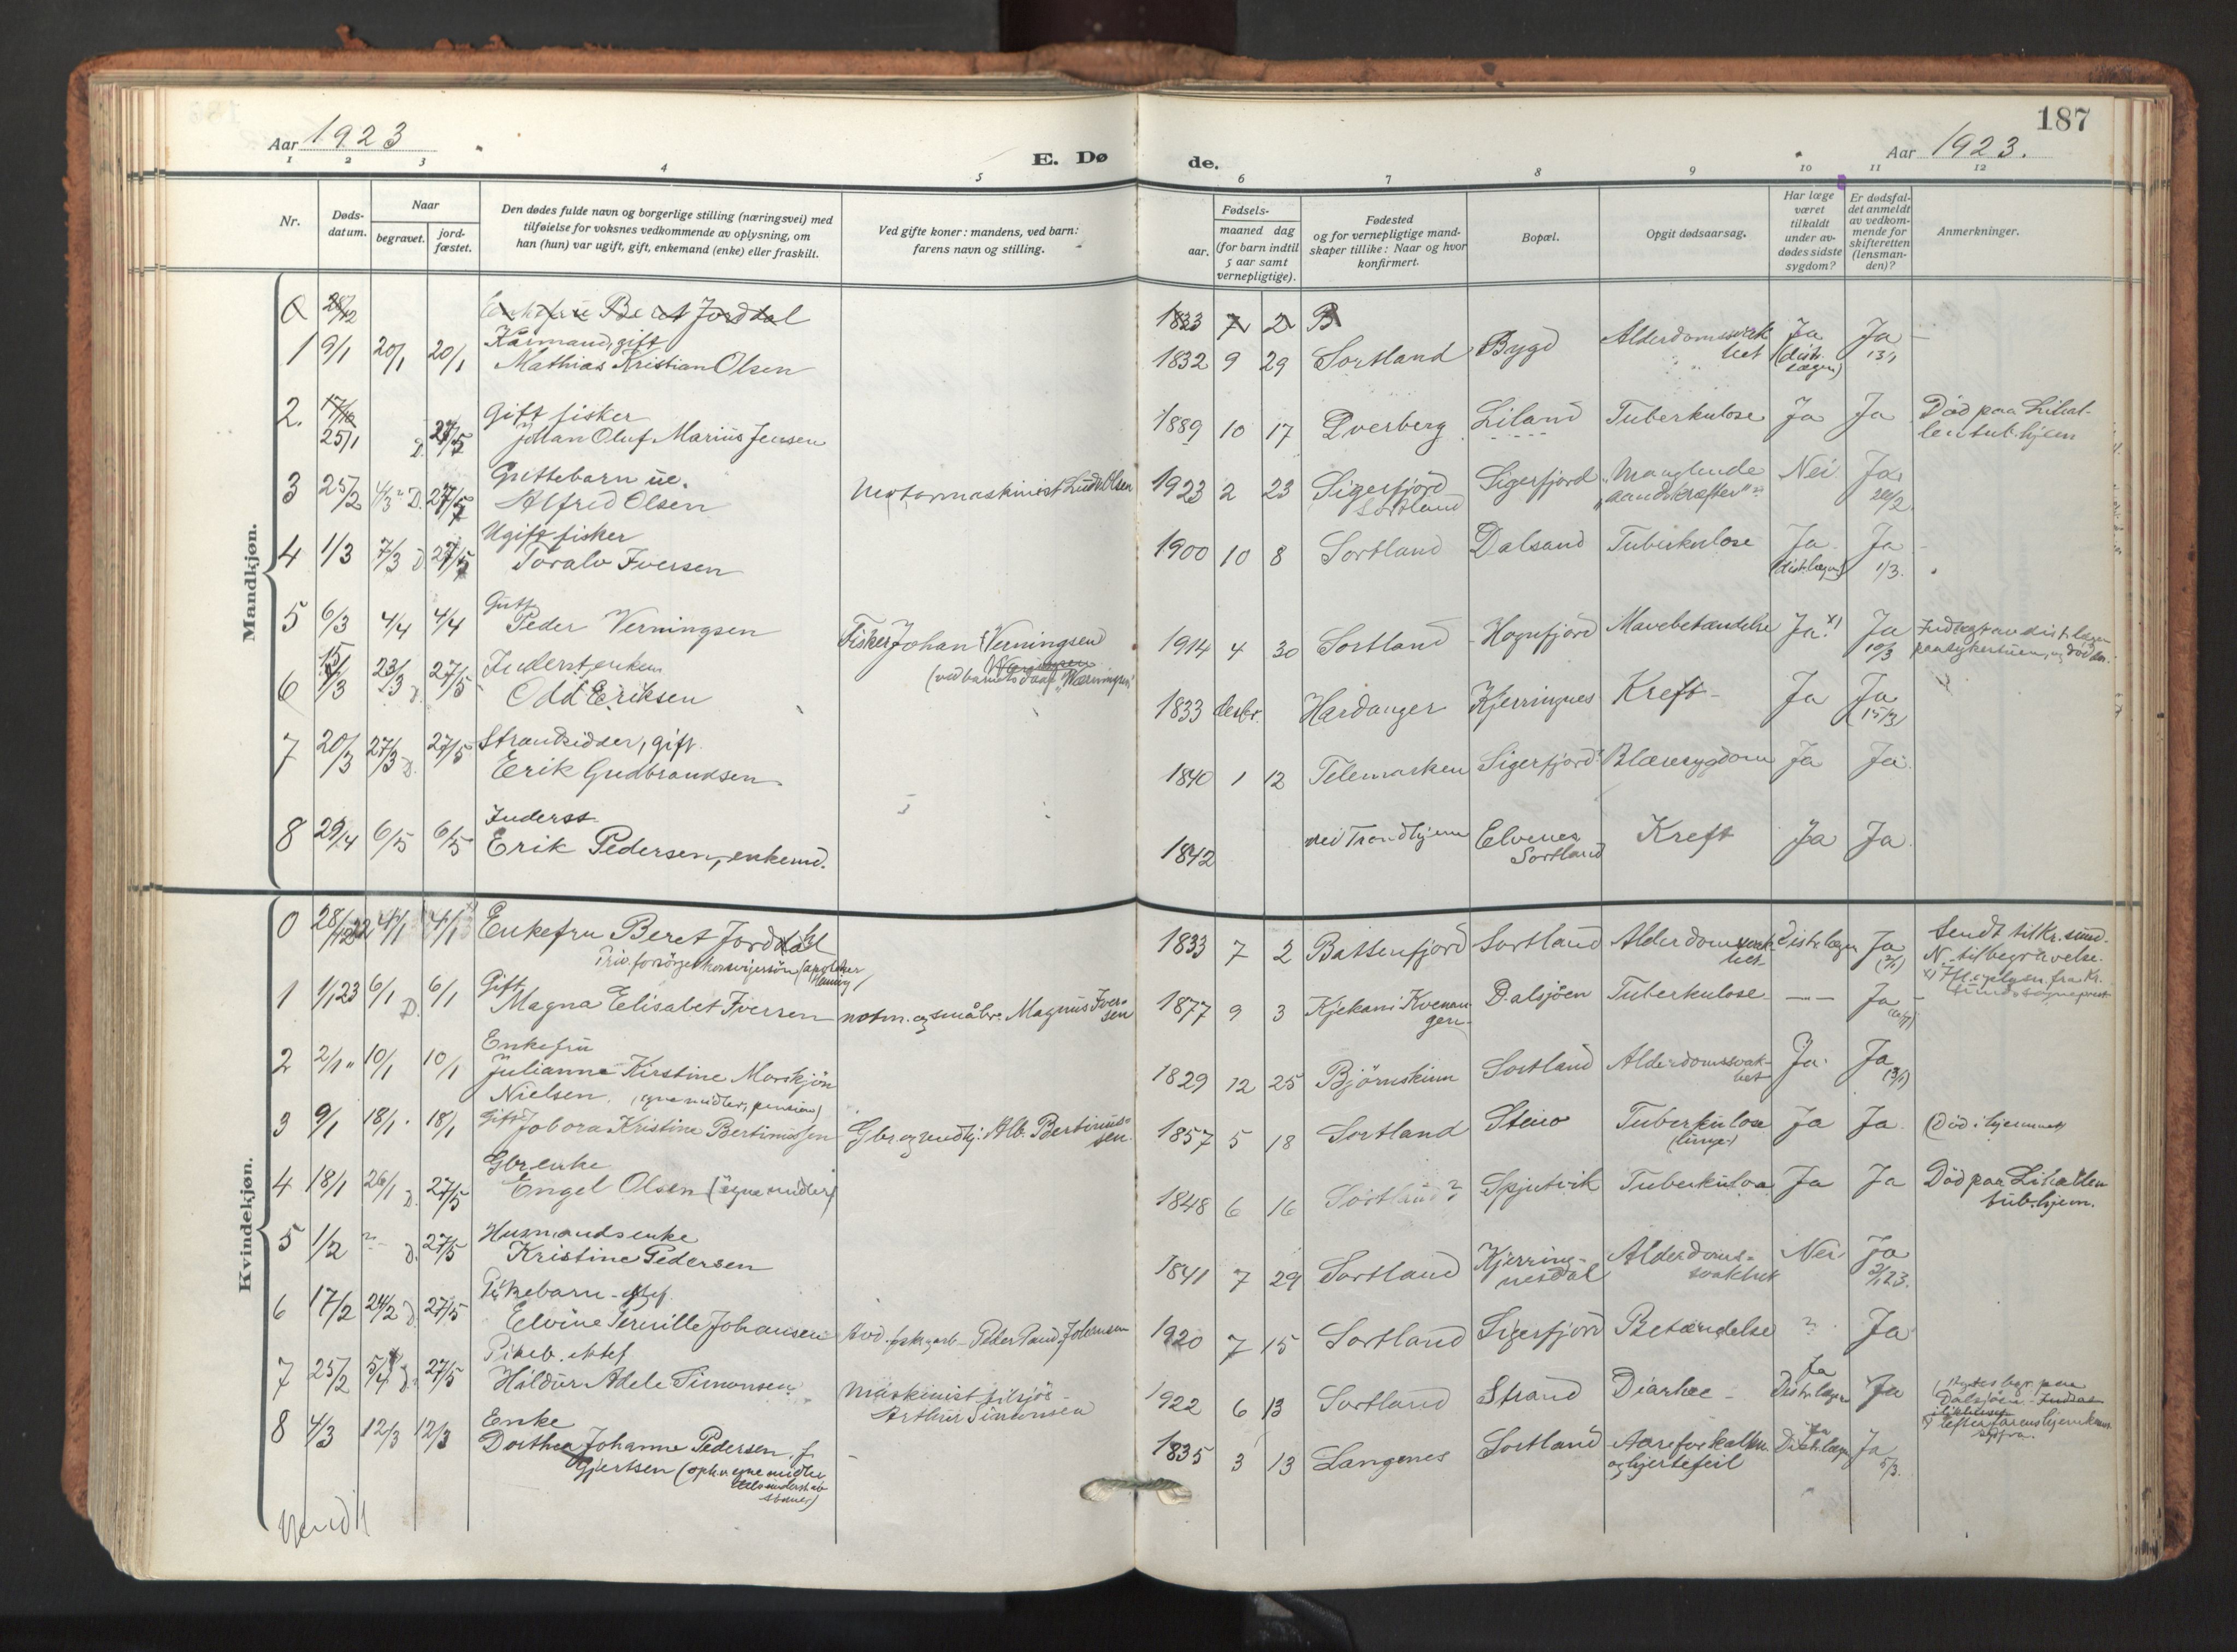 187
Aar 1923
E. Dø
de.
Aar 1923.
1 2 3 4 5 6 7 8 9 10 11 12
Nr.
Døds-
datum.
Naar
begravet.
jord-
fæstet.
Den dødes fulde navn og borgerlige stilling (næringsvei) med
tilføielse for voksnes vedkommende av oplysning, om
han (hun) var ugift, gift, enkemand (enke) eller fraskilt.
Ved gifte koner: mandens, ved barn:
farens navn og stilling.
Fødsels-
aar.
maaned dag
(for barn indtil
5 aar samt
vernepligtige).
Fødested
og for vernepligtige mand-
skaper tillike: Naar og hvor
konfirmert.
Bopæl.
Opgit dødsaarsag.
Har læge
været
tilkaldt
under av-
dødes sidste
sygdom?
Er dødsfal-
det anmeldt
av vedkom-
mende for
skifteretten
(lensman-
den)?
Anmerkninger.
Mandkjøn.
0 28/12 Enkefru Beret Jorddal 1833 7 2 B
Kaarmand, gift
1 9/1 20/1 20/1 Mathias Kristian Olsen 1832 9 29 Sortland Bygd Alderdomssvak- Ja Ja -
het (distr. 13/1
lægen)
Gift fisker
2. 25/1 D. 27/5 Johan Oluf Marius Jensen 1889 10 17 Dverberg Liland Tuberkulose Ja Ja Död paa Lihal-
len tub. hjem
Guttebarn ue.
3 25/2 4/3 D. 27/5 Alfred Olsen Motormaskinist Ludv. Olsen 1923 2 23 Sigerfjord Sigerfjord "Manglende Nei Ja
Sortland aandskræfter" 28/2
Ugift fisker
4 1/3 7/3 D 27/5 Toralv Iversen 1900 10 8 Sortland Dalsand Tuberkulose Ja Ja
(distr.lægen) 1/3.
Gutt
5 6/3 4/4 4/4 Peder Verningsen Fisker Johan Verningsen 1914 4 30 Sortland Hognfjord Mavebetændelse Ja x) Ja Indlagt av distr.lægen
(ved barnets daap "Værningsen") 10/3 paa sykestuen, og död der.
Inderst, enkem.
6 15/3 23/3 D. 27/5 Odd Eriksen 1833 desbr. Hardanger Kjerringnes Kreft - Ja Ja
(15/3)
7 20/3 27/3 D. 27/5 Strandsidder, gift.
Erik Gudbrandsen 1840 1 12 Telemarken Sigerfjord Blæresygdom Ja Ja
Inderst
8 29/4 6/5 6/5 Erik Pedersen, enkemd. 1842 ved Trondhjem Elvenes Kreft Ja Ja
Sortland
Kvindekjøn.
0 28/12 22 4/1 4/1 Enkefru Beret Jorddal 1833 7 2 Battenfjord Sortland Alderdomssvak- distr.lægen Ja Sendt til Kr.sund.
Priv. forsörget hos svigersön (apoteker het (2/1) N. til begravelse.
Gift
1 1/1 23 6/1 D. 6/1 Magna Elisabet Iversen notm. og småbr. Magnus Iver- 1877 9 3 Kjekan i Kvenan- Dalsjöen Tuberkulose - - Ja
sen gen
Enkefru
2 2/1 " 10/1 10/1 Julianna Kirstine Morskjön 1829 12 25 Björnskinn Sortland Alderdomssvak- Ja Ja
Nielsen. (egne midler, pension) het (3/1)
3 9/1 18/1 18/1 Gift Jobora Kristine Bertinussen Gbr. og vedkj. Alb. Bertinus- 1857 5 18 Sortland Steiro Tuberkulose Ja Ja (Död i hjemmet)
sen. (lunge)
Gbr.enke
4 18/1 26/1 D. 27/5 Engel Olsen (egne midler) 1848 6 16 Sortland? Spjutvik Tuberkulose Ja Ja Död paa Lihallen
tub.hjem.
Husmandsenke
5 1/2 ? D. 27/5 Kristine Pedersen 1841 7 29 Sortland Kjerring- Alderdoms- Nei Ja
nesdal svakhet 2/2 23.
Pikebarn
6 17/2 24/2 D. 27/5 Elvine Pernille Johansen Peder Johansen 1920 7 15 Sortland Sigerfjord Betændelse ? Ja
Pikeb. ektef.
7 25/2 5/4 D. 27/5 Haldur Adele Simonsen Maskinist tilsjös 1922 6 13 Sortland Strand Diarhe - Ja Ja
Arthur Simonsen Distr.lægen
Enke
8 4/3 12/3 12/3 Dorthea Johanne Pedersen f. - 1835 3 13 Langenes Sortland Aareforkalkn. Ja Ja
Gjertsen (oph. v. egne midler og hjertefeil Distr.lægen 5/3.